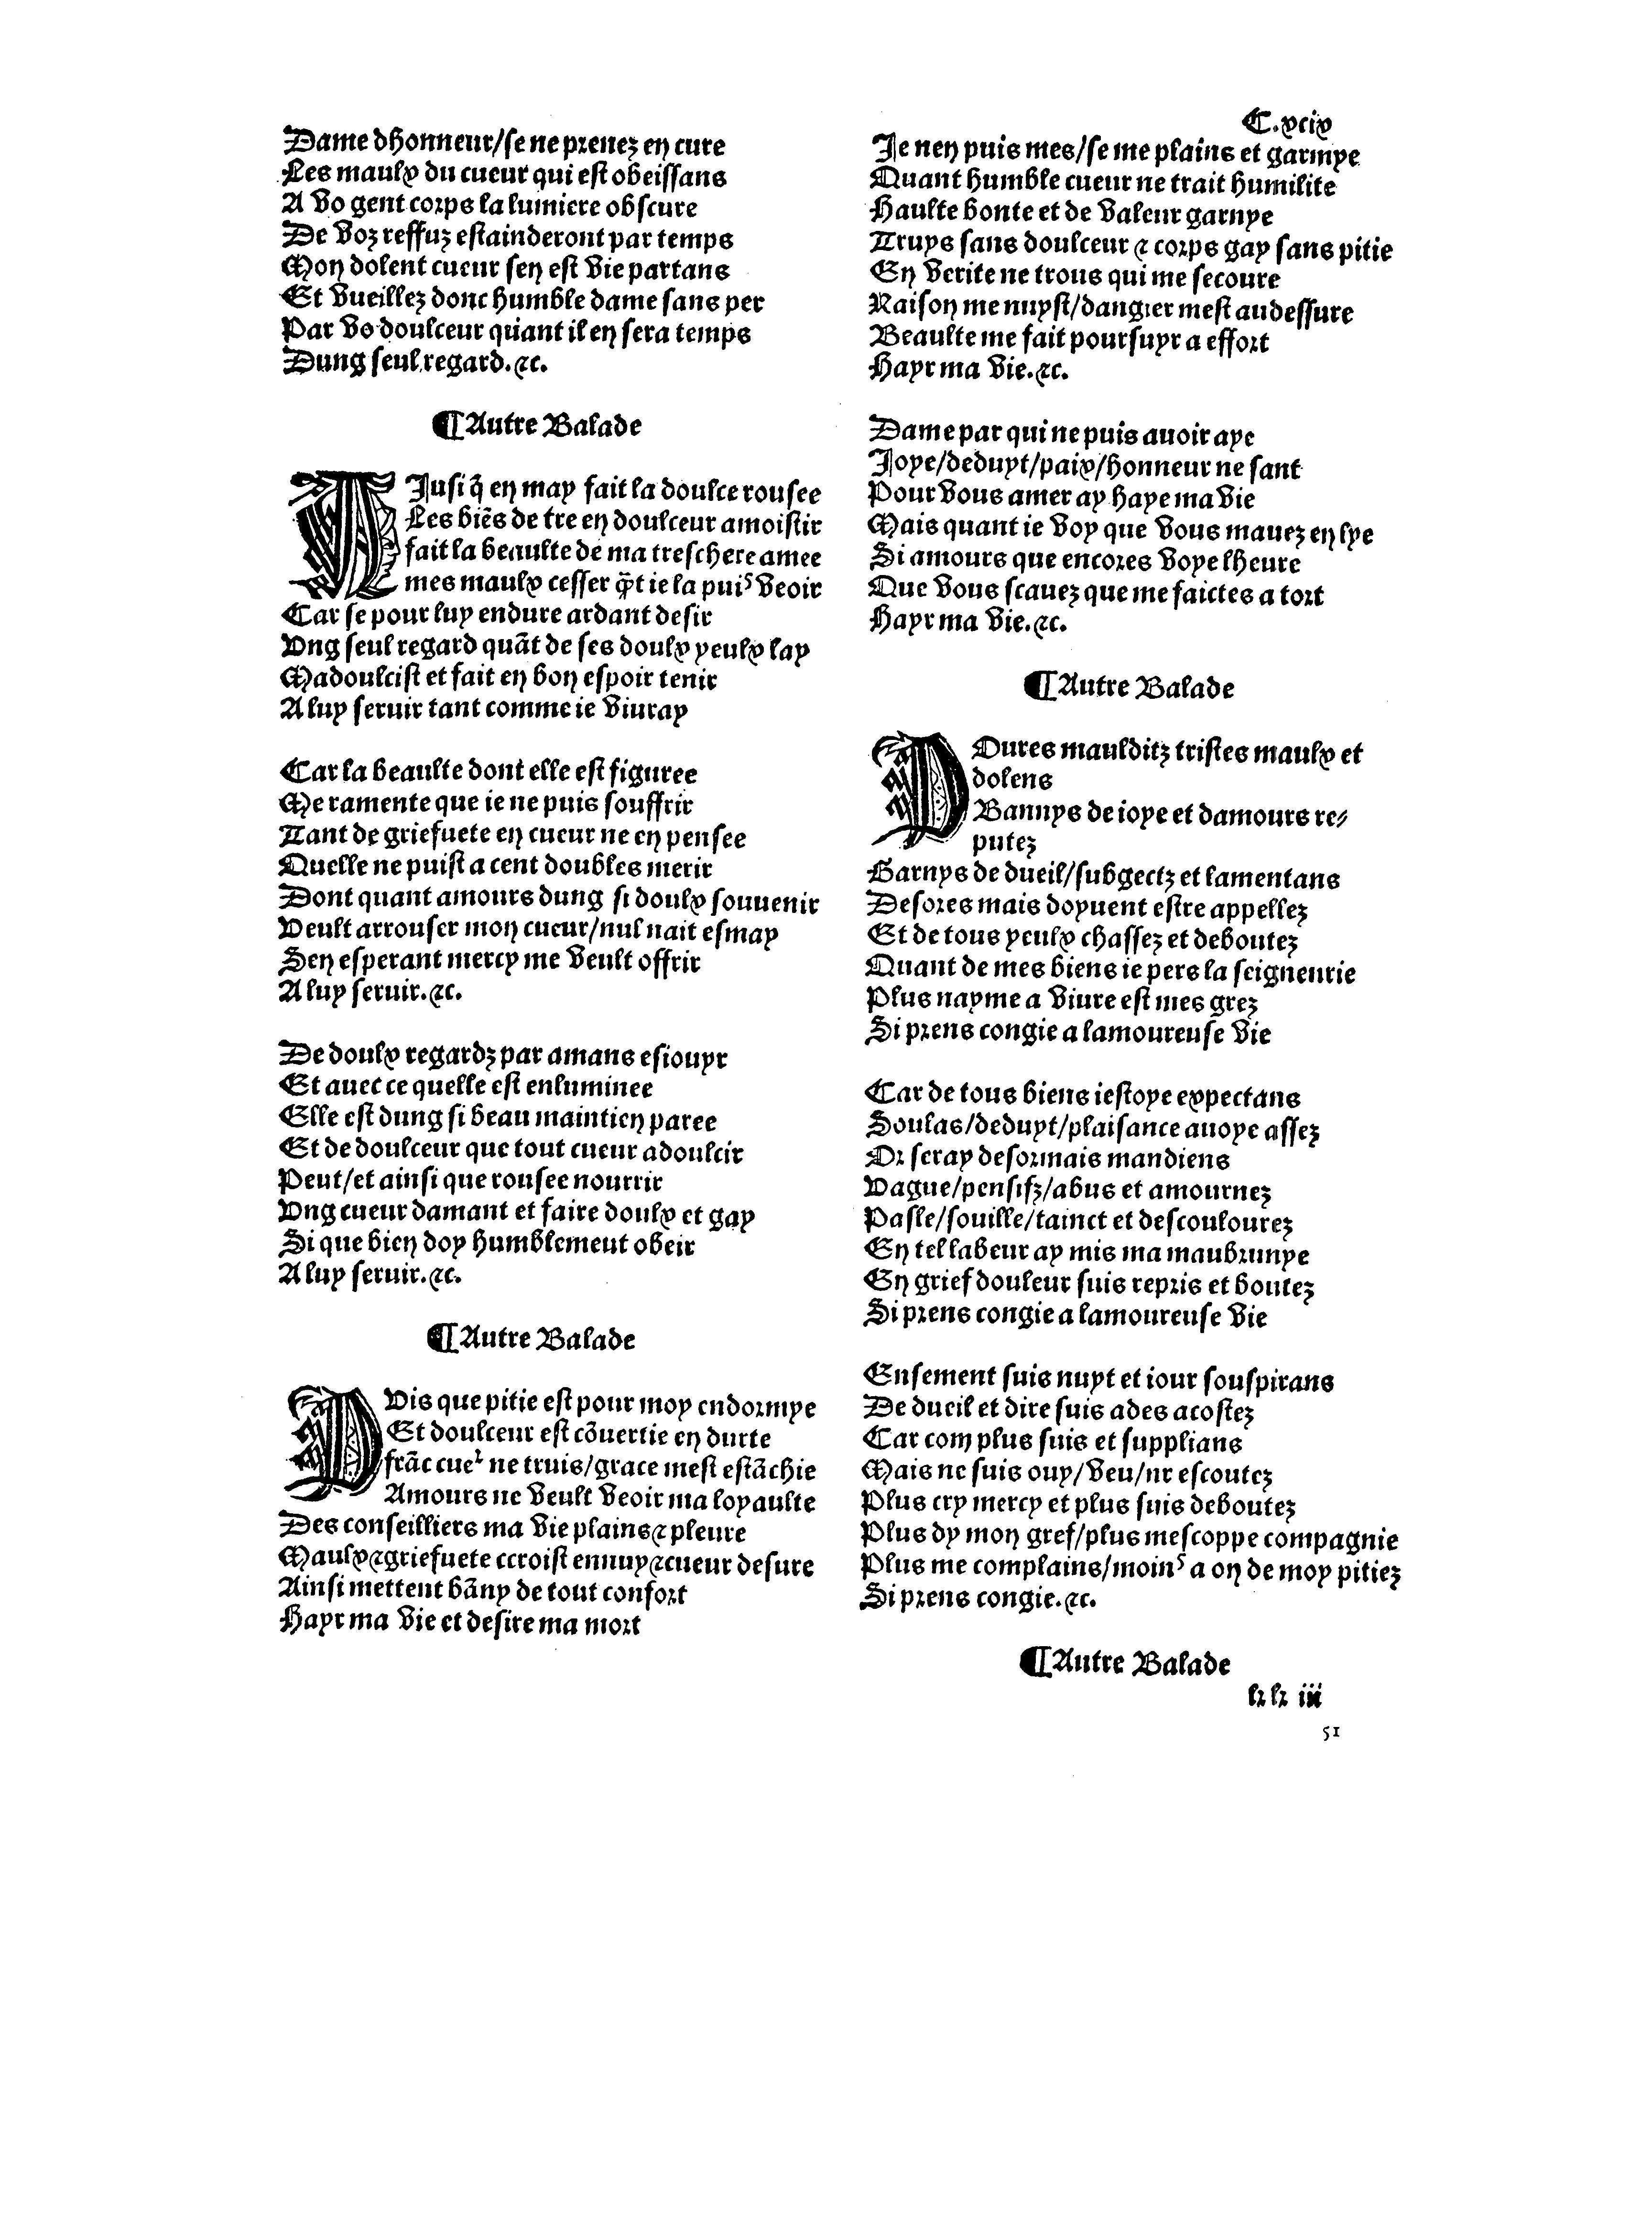 C.xcix
Dame dhonneur/se ne prenez en cure
Les maulx du cueur qui est obeissans
A vo gent corps la lumiere obscure
De voz reffuz estainderont par temps
Mon dolent cueur sen est vie partans
Et vueillez donc humble dame sans per
Par vo doulceur quant il en sera temps
Dung seul regard.⁊c.
¶Autre Balade
AJusi q̃ en may fait la doulce rousee
Les biẽs de tre en doulceur amoistir
fait la beaulte de ma treschere amee
mes maulx cesser q̃t ie la puiꝰ veoir
Car se pour luy endure ardant desir
Ung seul regard quãt de ses doulx yeulx lay
Madoulcist et fait en bon espoir tenir
A luy seruir tant comme ie viuray
Car la beaulte dont elle est figuree
Me ramente que ie ne puis souffrir
Tant de griefuete en cueur ne en pensee
Quelle ne puist a cent doubles merir
Dont quant amours dung si doulx souuenir
Veult arrouser mon cueur/nul nait esmay
Sen esperant mercy me veult offrir
A luy seruir.⁊c.
De doulx regardz par amans esiouyr
Et auec ce quelle est enluminee
Elle est dung si beau maintien paree
Et de doulceur que tout cueur adoulcir
Peut/et ainsi que rousee nourrir
Ung cueur damant et faire doulx et gay
Si que bien doy humblement obeir
A luy seruir.⁊c.
¶Autre Balade
PUis que pitie est pour moy endormye
Et doulceur est cõuertie en durte
frãc cueʳ ne truis/grace mest estãchie
Amours ne veult veoir ma loyaulte
Des conseilliers ma vie plains⁊pleure
Maulx⁊griefuete ccroist ennuy⁊cueur desure
Ainsi mettent bãny de tout confort
Hayr ma vie et desire ma mort
Je nen puis mes/se me plains et garmye
Quant humble cueur ne trait humilite
Haulte bonte et de valeur garnye
Truys sans doulceur ⁊ corps gay sans pitie
En verite ne trous qui me secoure
Raison me nuyst/dangier mest audessure
Beaulte me fait poursuyr a effort
Hayr ma vie.⁊c.
Dame par qui ne puis auoir aye
Joye/deduyt/paix/honneur ne sant
Pour vous amer ay haye ma vie
Mais quant ie voy que vous mauez en lye
Si amours que encores voye lheure
Que vous scauez que me faictes a tort
Hayr ma vie.⁊c.
¶Autre Balade
POures maulditz tristes maulx et
dolens
Bannys de ioye et damours re⸗
putez
Garnys de dueil/subgectz et lamentans
Desores mais doyuent estre appellez
Et de tous yeulx chassez et deboutez
Quant de mes biens ie pers la seigneurie
Plus nayme a viure est mes grez
Si prens congie a lamoureuse vie
Car de tous biens iestoye expectans
Soulas/deduyt/plaisance auoye assez
Or seray desormais mandiens
Vague/pensifz/abus et amournez
Pasle/souille/tainct et descoulourez
En tel labeur ay mis ma maubrunye
En grief douleur suis repris et boutez
Si prens congie a lamoureuse vie
Ensement suis nuyt et iour souspirans
De dueil et dire suis ades acostez
Car com plus suis et supplians
Mais ne suis ouy/veu/ne escoutez
Plus cry mercy et plus suis deboutez
Plus dy mon gref/plus mescoppe compagnie
Plus me complains/moinꝰ a on de moy pitiez
Si prens congie.⁊c.
¶Autre Balade
kk iii
51